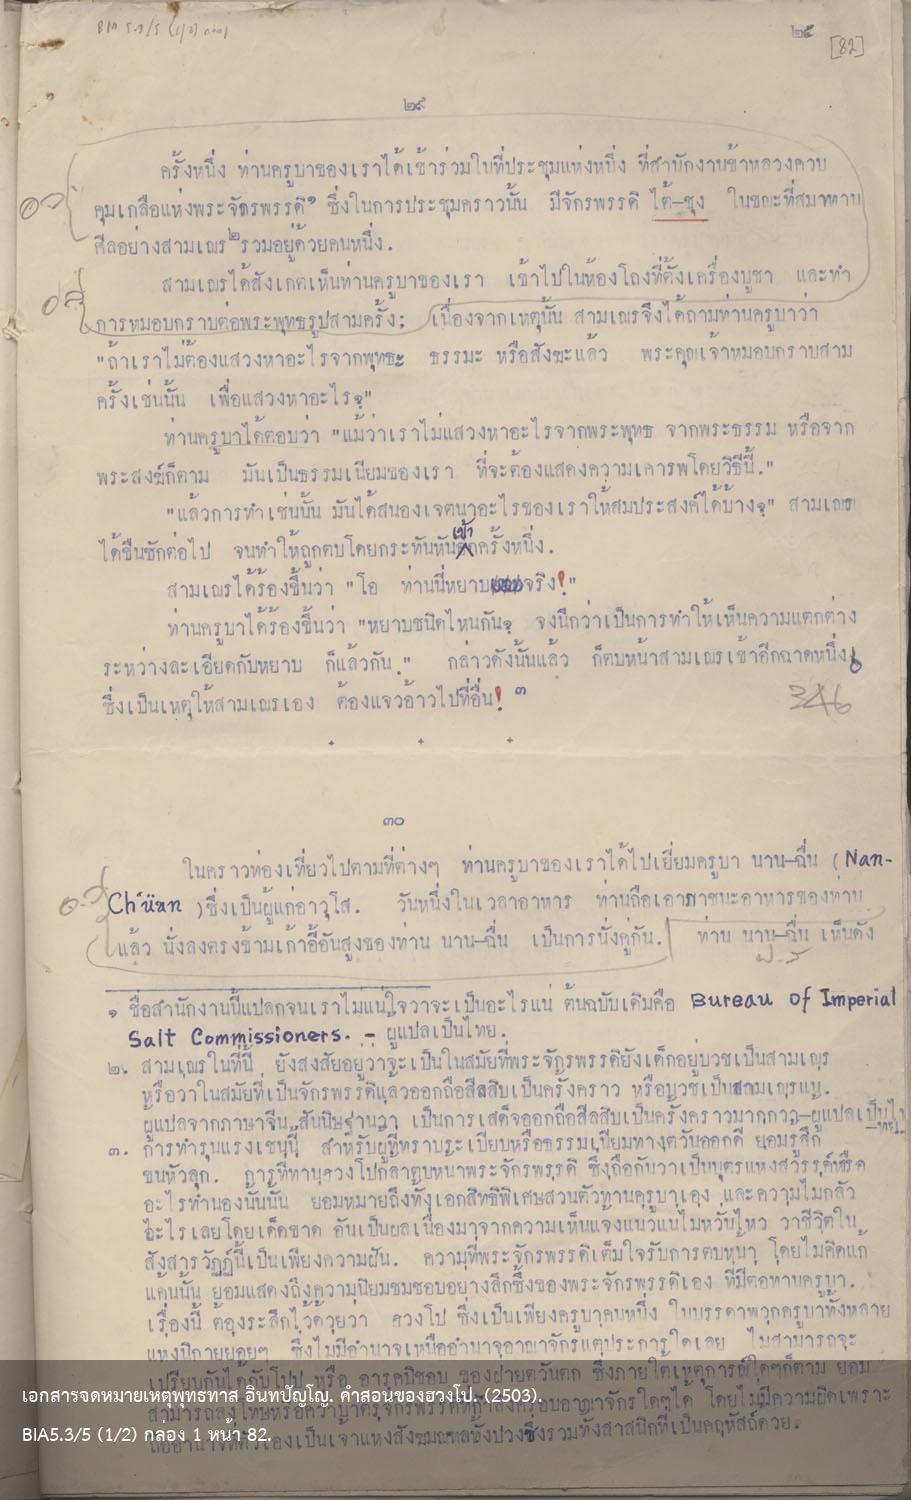 BIA 5.3/5 (1/2) กล่อง1
๒๕
[82]
๒๙
ครั้งหนึ่ง ท่านครูบาของเราได้เข้าร่วมในที่ประชุมแห่งหนึ่ง ที่สำนักงานข้าหลวงควบ
คุมเกลือแห่งพระจักรพรรดิ๑ ซึ่งในการประชุมคราวนั้น มีจักรพรรดิ ไต้-ซุง ในขณะที่สมาทาน
ศีลอย่างสามเณร๒รวมอยู่ด้วยคนหนึ่ง.
สามเณรได้สังเกตเห็นท่านครูบาของเรา เข้าไปในห้องโถงที่ตั้งเครื่องบูชา และทำ
การหมอบกราบต่อพระพุทธรูปสามครั้ง; เนื่องจากเหตุนั้น สามเณรจึงได้ถามท่านครูบาว่า
"ถ้าเราไม่ต้องแสวงหาอะไรจากพุทธะ ธรรมะ หรือสังฆะแล้ว พระคุณเจ้าหมอบกราบสาม
ครั้งเช่นนั้น เพื่อแสวงหาอะไร?"
ท่านครูบาได้ตอบว่า "แม้ว่าเราไม่แสวงหาอะไรจากพระพุทธ จากพระธรรม หรือจาก
พระสงฆ์ก็ตาม มันเป็นธรรมเนียมของเรา ที่จะต้องแสดงความเคารพโดยวิธีนี้."
"แล้วการทำเช่นนั้น มันได้สนองเจตนาอะไรของเราให้สมประสงค์ได้บ้าง?" สามเณร
ได้ขืนซักต่อไป จนทำให้ถูกตบโดยกระทันหันเข้าครั้งหนึ่ง.
สามเณรได้ร้องขึ้นว่า "โอ ท่านนี่หยาบจริง!"
ท่านครูบาได้ร้องขึ้นว่า "หยาบชนิดไหนกัน? จงนึกว่าเป็นการทำให้เห็นความแตกต่าง
ระหว่างละเอียดกับหยาบ ก็แล้วกัน." กล่าวดังนั้นแล้ว ก็ตบหน้าสามเณรเข้าอีกฉาดหนึ่ง
ซึ่งเป็นเหตุให้สามเณรเอง ต้องแจวอ้าวไปที่อื่น! ๓
346
+ + +
๓๐
ในคราวท่องเที่ยวไปตามที่ต่างๆ ท่านครูบาของเราได้ไปเยี่ยมครูบา นาน-ฉื่น (Nan-
Ch'üan )ซึ่งเป็นผู้แก่อาวุโส. วันหนึ่งในเวลาอาหาร ท่านถือเอาภาชนะอาหารของท่าน
แล้ว นั่งลงตรงข้ามเก้าอี้อันสูงของท่าน นาน-ฉื่น เป็นการนั่งคู่กัน. ท่าน นาน-ฉื่น เห็นดัง
๑ ชื่อสำนักงานนี้แปลกจนเราไม่แน่ใจว่าจะเป็นอะไรแน่ ต้นฉบับเดิมคือ Bureau of Imperial
Salt Commissioners. - ผู้แปลเป็นไทย.
๒. สามเณรในที่นี้ ยังสงสัยอยู่ว่าจะเป็นในสมัยที่พระจักรพรรดิยังเด็กอยู่บวชเป็นสามเณร
หรือว่าในสมัยที่เป็นจักรพรรดิแล้วออกถือศีลสิบเป็นครั้งคราว หรือบวชเป็นสามเณรแน่.
ผู้แปลจากภาษาจีน สันนิษฐานว่า เป็นการเสด็จออกถือศีลสิบเป็นครั้งคราวมากกว่า-ผู้แปลเป็นไทย.
๓. การทำรุนแรงเช่นนี้ สำหรับผู้ที่ทราบระเบียบหรือธรรมเนียมทางตะวันออกดี ย่อมรู้สึก
ขนหัวลุก. การที่ท่านฮวงโปกล้าตบหน้าพระจักรพรรดิ ซึ่งถือกันว่าเป็นบุตรแห่งสวรรค์หรือ
อะไรทำนองนั้นนั้น ย่อมหมายถึงทั้งเอกสิทธิพิเศษส่วนตัวท่านครูบาเอง และความไม่กลัว
อะไรเลยโดยเด็ดขาด อันเป็นผลเนื่องมาจากความเห็นแจ้งแน่วแน่ไม่หวั่นไหว ว่าชีวิตใน
สังสารวัฏฏ์นี้เป็นเพียงความฝัน. ความที่พระจักรพรรดิเต็มใจรับการตบหน้า โดยไม่คิดแก้
แค้นนั้น ย่อมแสดงถึงความนิยมชมชอบอย่างลึกซึ้งของพระจักรพรรดิเอง ที่มีต่อท่านครูบา.
เรื่องนี้ ต้องระลึกไว้ด้วยว่า ฮวงโป ซึ่งเป็นเพียงครูบาคนหนึ่ง ในบรรดาพวกครูบาทั้งหลาย
แห่งนิกายย่อยๆ ซึ่งไม่มีอำนาจเหนืออำนาจอาณาจักรแต่ประการใดเลย ไม่สามารถจะ
เปรียบกันได้กับโปป หรือ อาร์คบิชอบ ของฝ่ายตะวันตก ซึ่งภายใต้เหตุการณ์ใดๆก็ตาม ย่อม
เอกสารจดหมายเหตุพุทธทาส อินทปัญโญ. คำสอนของฮวงโป. (2503).
BIA5.3/5 (1/2) กล่อง 1 หน้า 82.